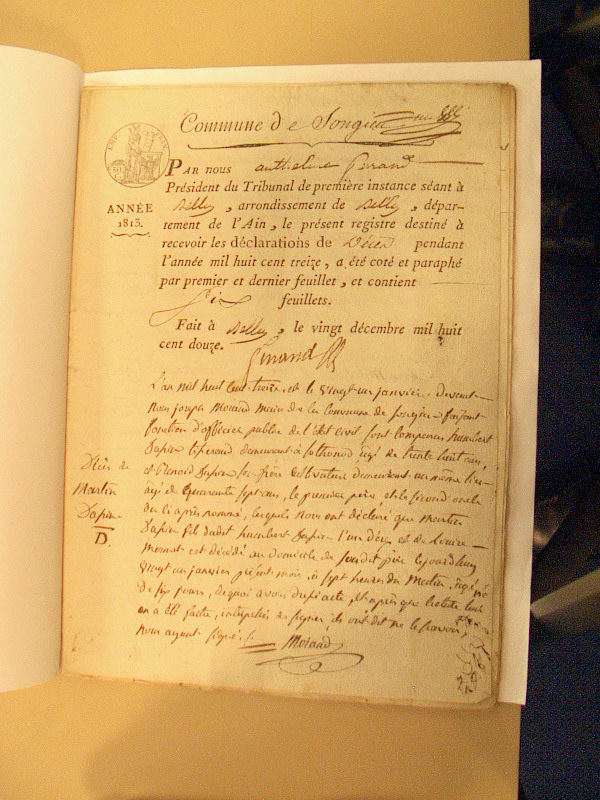 Commune de Songieu
PAR nous anthelme Genand
Président du Tribunal de première instance séant à
Belley, arrondissement de Belley, dépar-
tement de l'Ain, le présent registre destiné à
recevoir les déclarations de Décès pendant
l'année mil huit cent treize, a été coté et paraphé
par premier et dernier feuillet, et contient
Six feuillets.
Fait à Belley, le vingt décembre mil huit
cent douze.
ANNÉE
1813.
L'an mil huit cent treize, et le vingt un janvier, devant
nous joseph Morand maire de la commune de songieu faisant
fonction d'officier public de l'état civil sont comparus humbert
Sapin demeurant à sothonod âgé de trente huit ans,
et Benoid Sapin son frère cultivateur demeurant au même lieu
âgé de quarante sept ans, le premier père et le second oncle
du ci après nommé, lesquels nous ont déclaré que Martin
Sapin fils dudit humbert Sapin l'un d'eux et de Louise
est décédé au domicile de sondit père le jourdhuy
vingt un janvier présent mois à sept heures du matin, âgé
de six jours, dequoi avons dressé acte, et après que lecture leur
en a été faite, interpellés de signer ils ont dit ne le savoir,
nous ayant signé.
Morand
Décès de
Martin
Sapin
D.